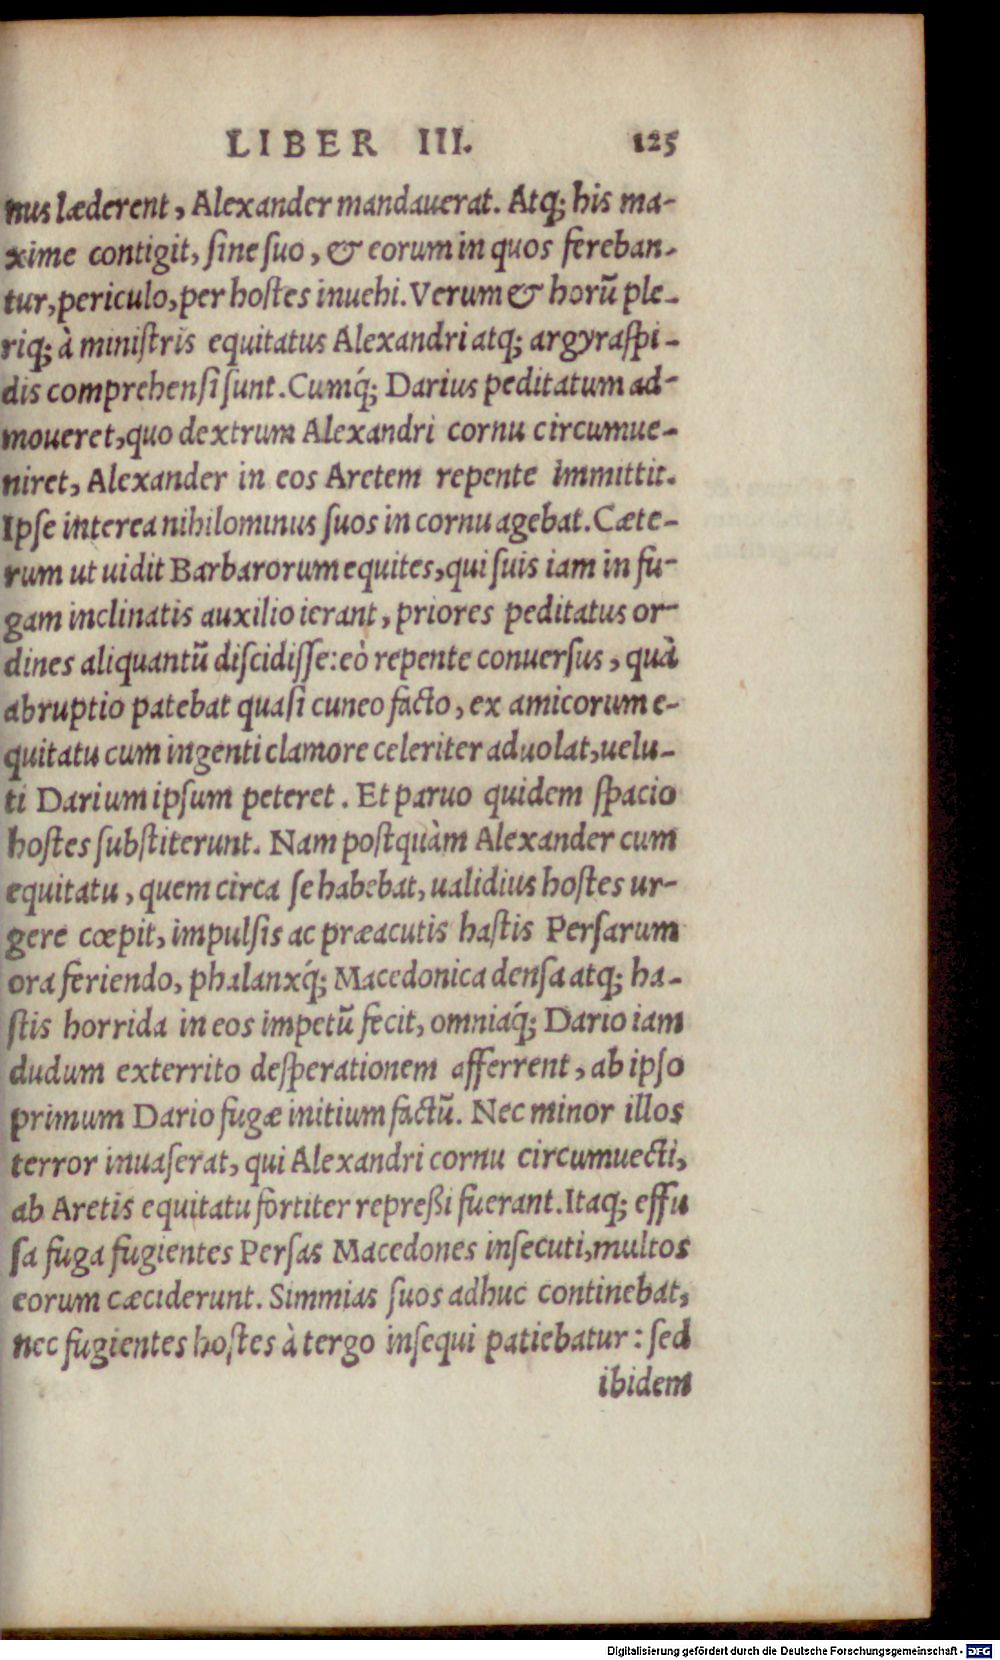 LIBER III. 125
mus læderent, Alexander mandauerat. Atq; his ma-
xime contigit, ſine ſuo, & eorum in quos fereban-
tur, periculo, per hoſtes inuehi. Verum & horũ ple-
riq; à miniſtris equitatus Alexandri atq; argyraſpi-
dis comprehenſi ſunt. Cumq́; Darius peditatum ad-
moueret, quo dextrum Alexandri cornu circumue-
niret, Alexander in eos Aretem repente immittit.
Ipſe interea nihilominus ſuos in cornu agebat. Cæte-
rum ut uidit Barbarorum equites, qui ſuis iam in fu-
gam inclinatis auxilio ierant, priores peditatus or-
dines aliquantũ diſcidiſſe: eò repente conuerſus, quà
abruptio patebat quaſi cuneo facto, ex amicorum e-
quitatu cum ingenti clamore celeriter aduolat, uelu-
ti Darium ipſum peteret. Et paruo quidem ſpacio
hoſtes ſubſtiterunt. Nam poſtquàm Alexander cum
equitatu, quem circa ſe habebat, ualidius hoſtes ur-
gere cœpit, impulſis ac præacutis haſtis Perſarum
ora feriendo, phalanxq́; Macedonica denſa atq; ha-
ſtis horrida in eos impetũ fecit, omniaq́; Dario iam
dudum exterrito deſperationem afferrent, ab ipſo
primum Dario fugæ initium factũ. Nec minor illos
terror inuaſerat, qui Alexandri cornu circumuecti,
ab Aretis equitatu fortiter repreßi fuerant. Itaq; effu
ſa fuga fugientes Perſas Macedones inſecuti, multos
eorum cæciderunt. Simmias ſuos adhuc continebat,
nec fugientes hoſtes à tergo inſequi patiebatur: ſed
ibidem
Digitalisierung gefördert durch die Deutsche Forschungsgemeinschaft - DFG